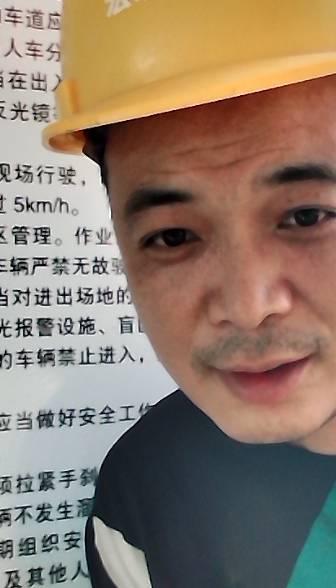 车道应
人车分
当在出入
反光镜
现场行驶，
过 5km/h。
区管理。作业
车辆严禁无故
当对进出场地的
光报警设施、盲
的车辆禁止进入，
应当做好安全工作
须拉紧手刹
辆不发生溜
期组织安
及其他人